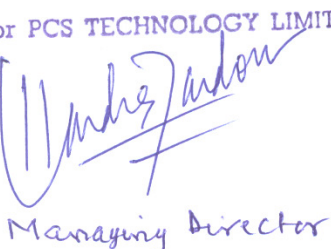 or PCS TECHNOLOGY LIMIT
Managing Director